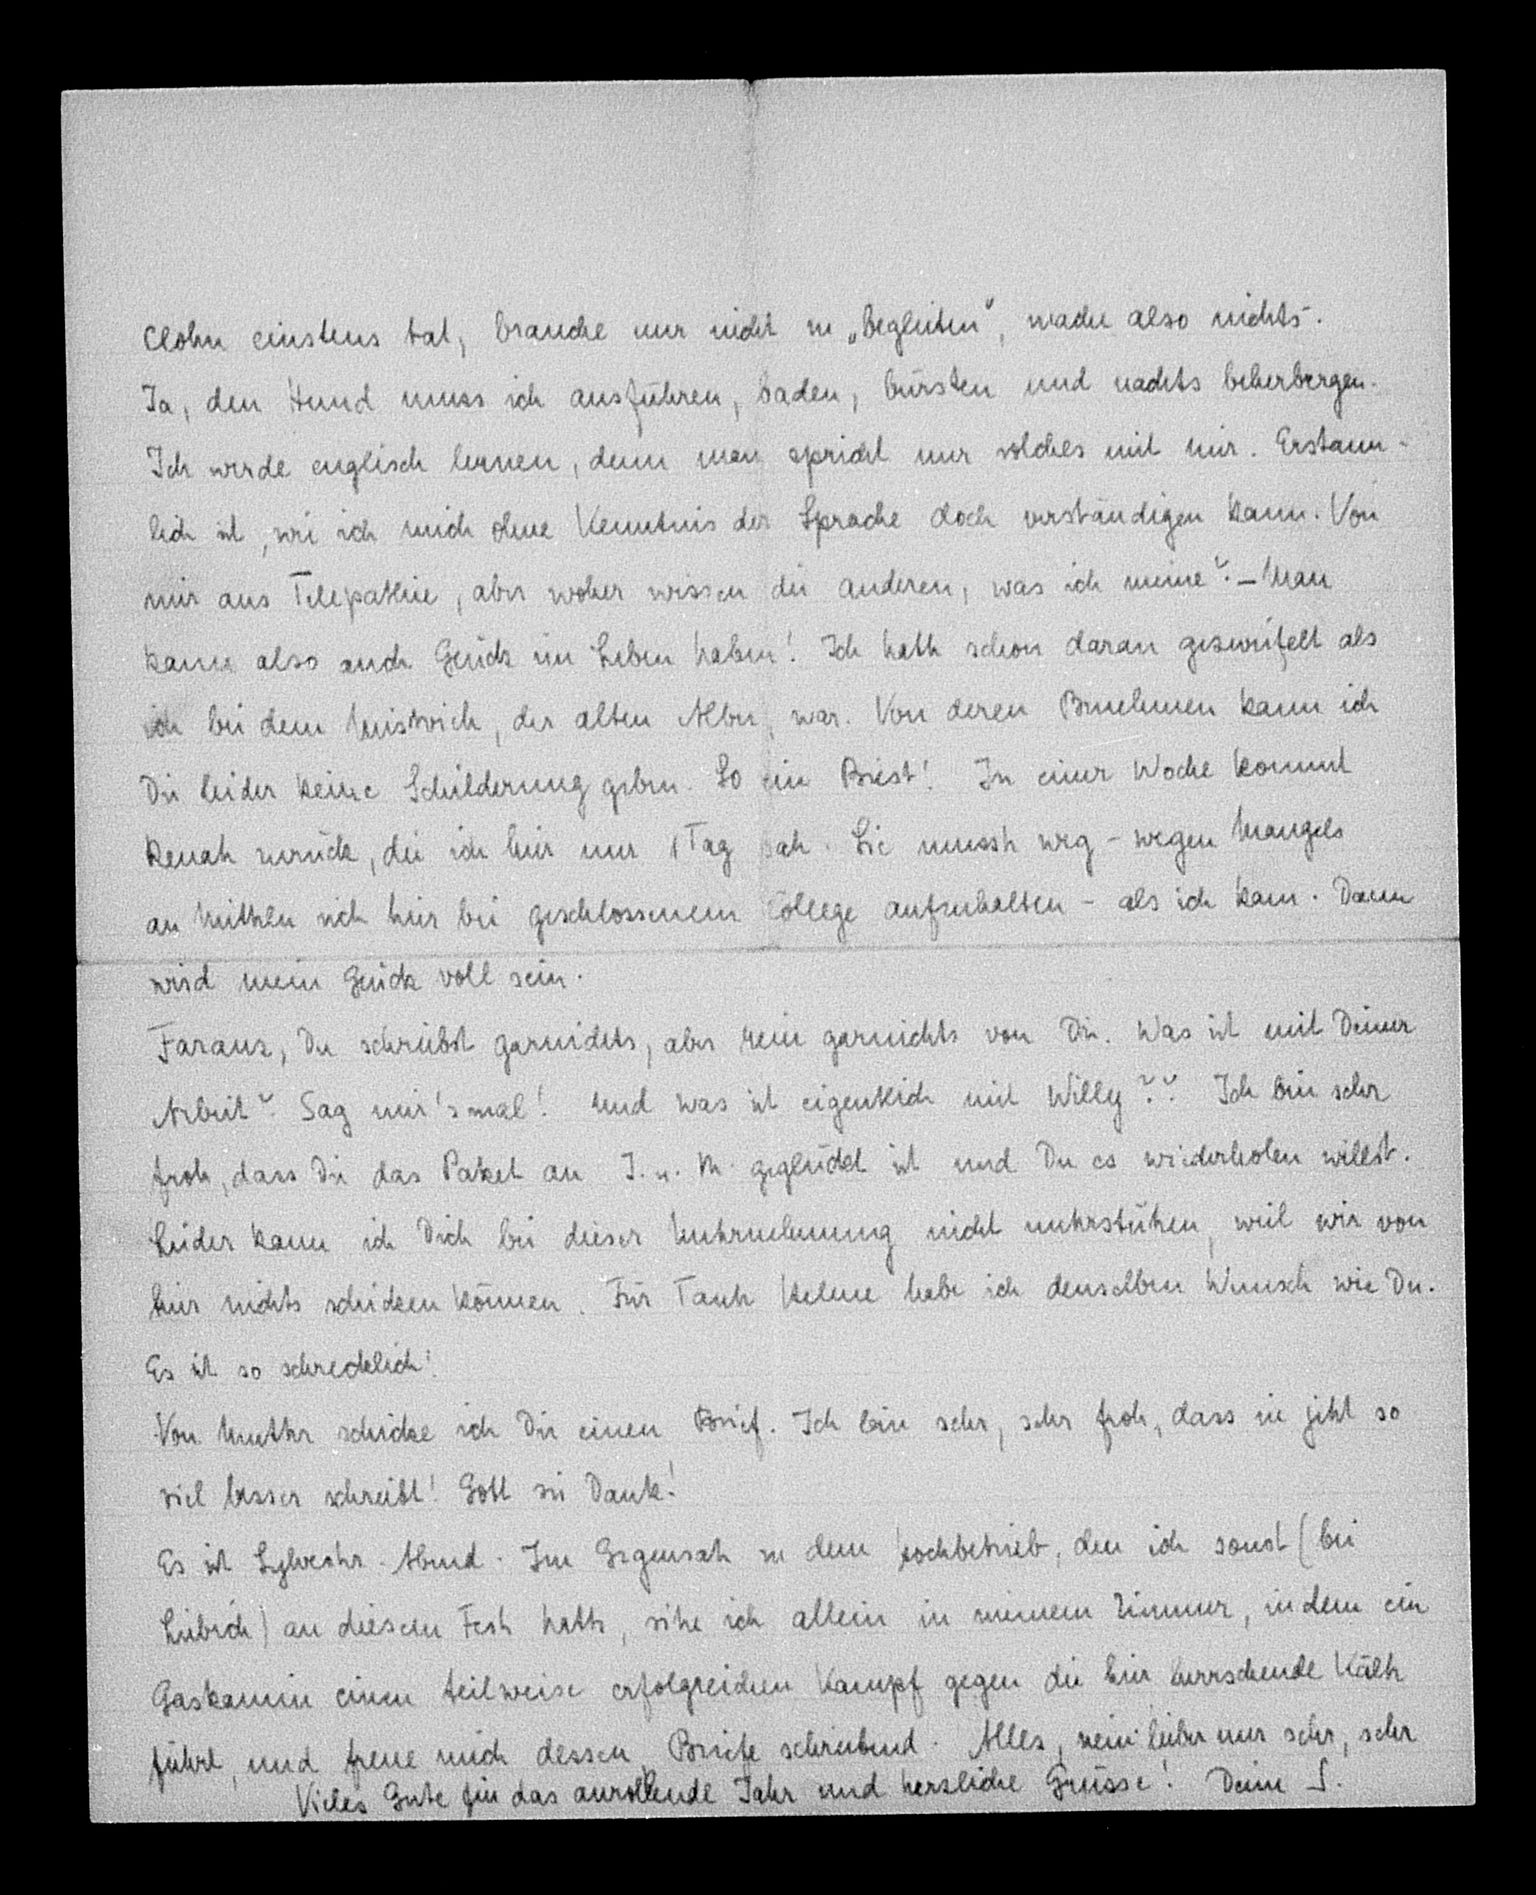 Clohn einstens tat, brauche nur nicht zu „begleiten", mache also nichts.
Ja, den Hund muss ich ausführen, baden, bürsten und nachts beherbergen.
Ich werde englisch lernen, denn man spricht nur solches mit mir. Erstaun-
lich ist, wie ich mich ohne Kenntnis der Sprache doch verständigen kann. Von
mir aus Telepathie, aber woher wissen die anderen, was ich meine? – Man
kann also auch Glück im Leben haben! Ich hatte schon daran gezweifelt als
ich bei dem Mistvieh, der alten Alber, war. Von deren Benehmen kann ich
Dir leider keine Schilderung geben. So ein Biest! In einer Woche kommt
Renate zurück, die ich hier nur 1 Tag sah. Sie musste weg – wegen Mangels
an Mitteln sich hier bei geschlossenem College aufzuhalten – als ich kam. Dann
wird mein Glück voll sein.
Faranz, Du schreibst garnichts, aber rein garnichts von Dir. Was ist mit Deiner
Arbeit? Sag mir's mal! Und was ist eigentlich mit Willy?? Ich bin sehr
froh, dass Dir das Paket an I. u. M. geglückt ist und Du es wiederholen willst.
Leider kann ich Dich bei dieser Unternehmung nicht unterstützen, weil wir von
hier nichts schicken können. Für Tante Helene habe ich denselben Wunsch wie Du.
Es ist so schrecklich!
Von Mutter schicke ich Dir einen Brief. Ich bin sehr, sehr froh, dass sie jetzt so
viel besser schreibt! Gott sei Dank!
Es ist Sylvester-Abend. Im Gegensatz zu dem Hochbetrieb, den ich sonst (bei
Liebich) an diesem Feste hatte, sitze ich allein in meinem Zimmer, in dem ein
Gaskamin einen teilweise erfolgreichen Kampf gegen die hier herrschende Kälte
führt, und freue mich dessen, Briefe schreibend. Alles, nein lieber nur sehr, sehr
Vieles Gute für das anrollende Jahr und herzliche Grüsse! Deine S.